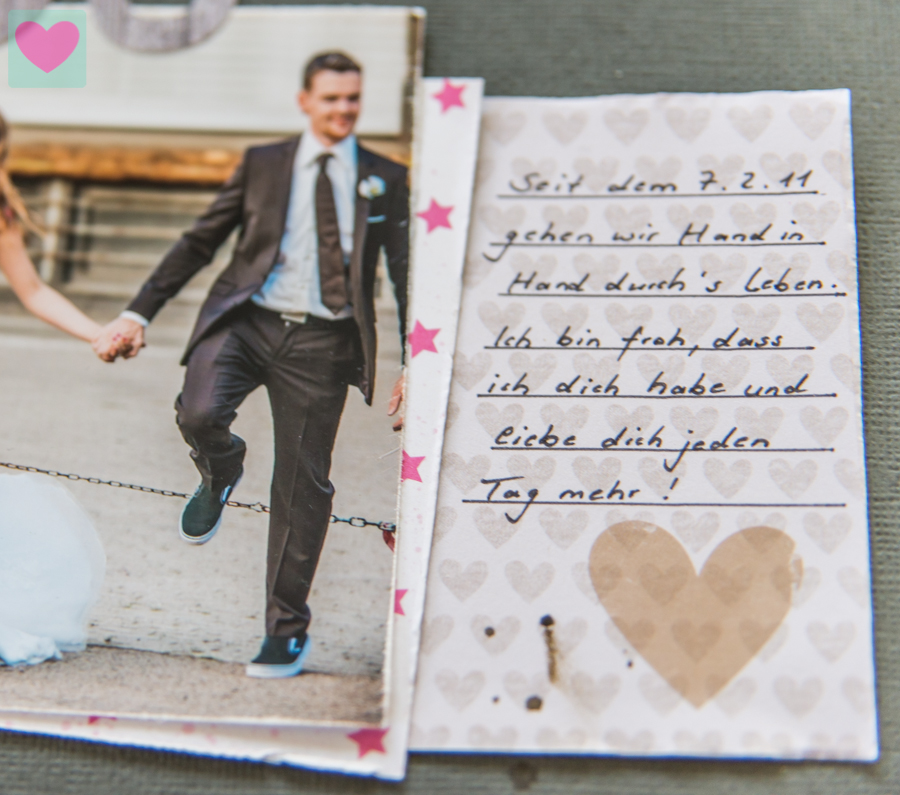 Seit dem 7.2.11
gehen wir Hand in
Hand durch's Leben.
Ich bin froh, dass
ich dich habe und
liebe dich jeden
Tag mehr!